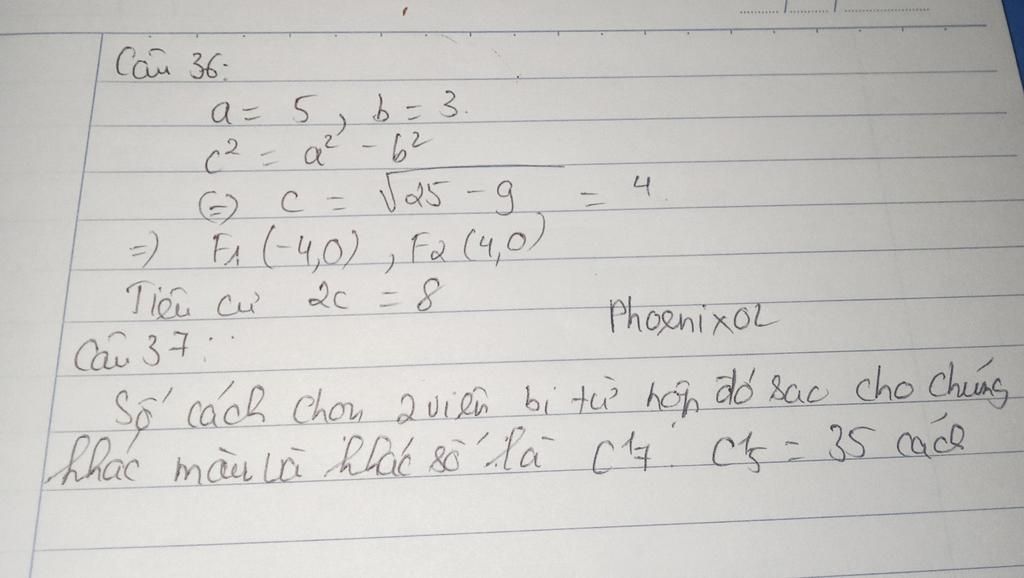 Câu 36:
a = 5, b = 3.
c² = a² - b²
(=) c = √25 - 9 = 4
=) F1 (-4,0), F2 (4,0)
Tiêu cự 2c = 8
Phoenix02
Câu 37:
Số cách chọn 2 viên bi từ hộp đó sao cho chúng
khác màu và khác số là C¹7 . C¹5 = 35 cách